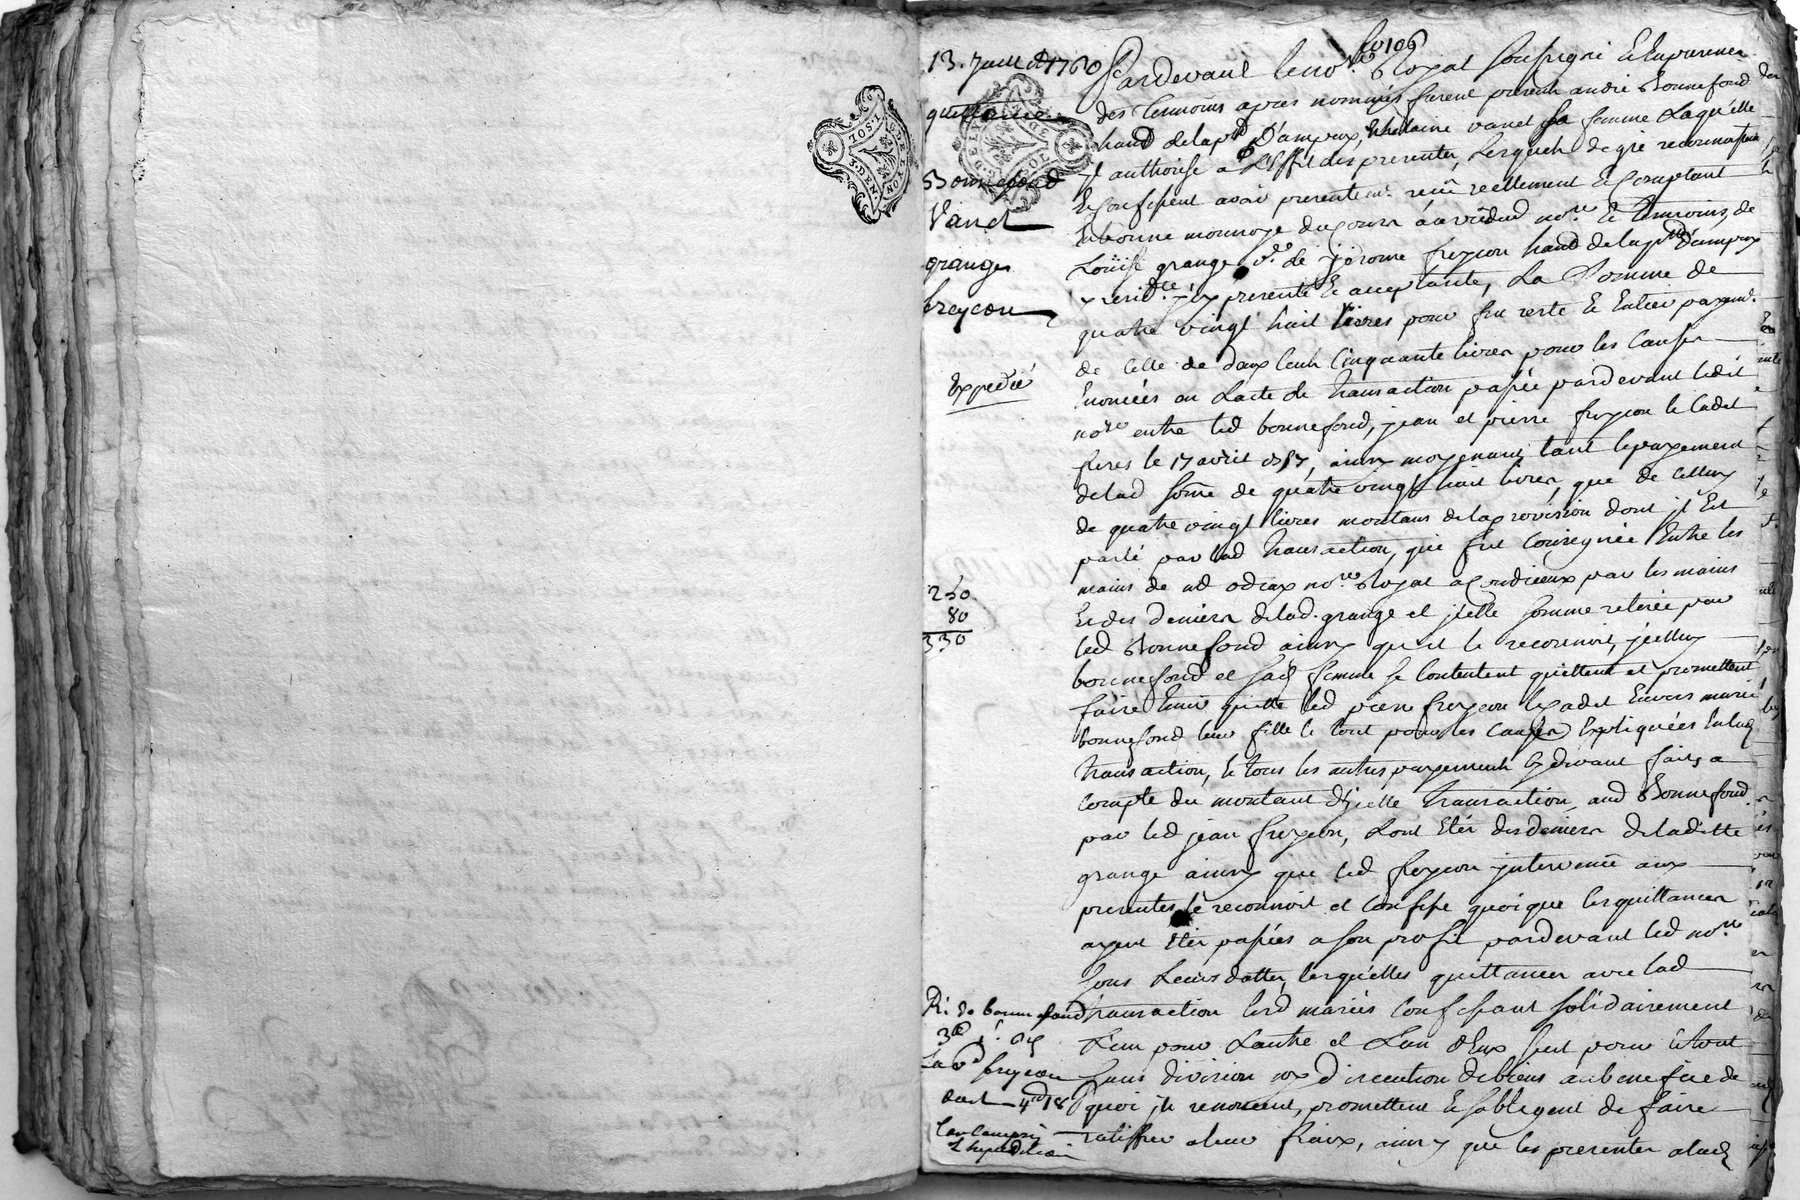 fo 106
13. Juillet 1760
quittance
Bonnefond
Vanel
grange
freycon
Expedié
250
80
330
Ri. de bonnefond
La ve freycon
GDELYON
I.SOL
DEN
Pardevant le nore Royal soussigné et en presence
des temoins apres nommés furent presents andré Bonnefond
habt de la psse D'ampuy, et helaine vanel sa femme Laquelle
il authorise a L'effet des presentes, Lesquels de gré reconnoissent
et confessent avoir presentemt reçu reellement et comptant
En bonne monnoye du cours au vû dud nore et temoins, de
Loüise grange ve de jerome freycon habt de la psse d'ampuy
y residte icy presente et acceptante, La Somme de
quatre vingt huit livres pour fin reste et entier payemt
de celle de deux cents cinquante livres pour les causes
Enoncées en L'acte de transaction passée pardevant ledit
nore entre led bonnefond, jean et pierre freycon le cadet
freres le 17 avril 1757, ainsy moyenant tant le payement
de lad somme de quatre vingt huit livres, que de celluy
de quatre vingt livres montant de la provision dont il Est
parlé par lad transaction, qui fut consignée Entre les
mains de me odiay nore Royal a condrieux par les mains
et des deniers de lad. grange et icelle somme retirée par
led Bonnefond ainsy qu'il le reconnoit, icelluy
bonnefond et sad femme se contentent quittent et promettent
faire tenir quitte led pierre freycon le cadet Envers marie
bonnefond leur fille le tout pour les causes Expliquées En lad
transaction, et tous les autres payements cy devant faits a
compte du montant d'icelle transaction aud Bonnefond
par led jean freycon, L'ont été des deniers de laditte
grange ainsy que led freycon intervenu aux
presentes le reconnoit et confesse quoique les quittances
ayent été passées a son profit pardevant led nore
sous Leurs dattes, lesquelles quittances avec lad
transaction lesd mariés confessant solidairement
L'un pour L'autre et L'un d'Eux seul pour le tout
sans division ny discution de biens au benefice de
quoi ils renoncent, promettent et s'obligent de faire
ratiffier a leur fraix, ainsy que les presentes a lad